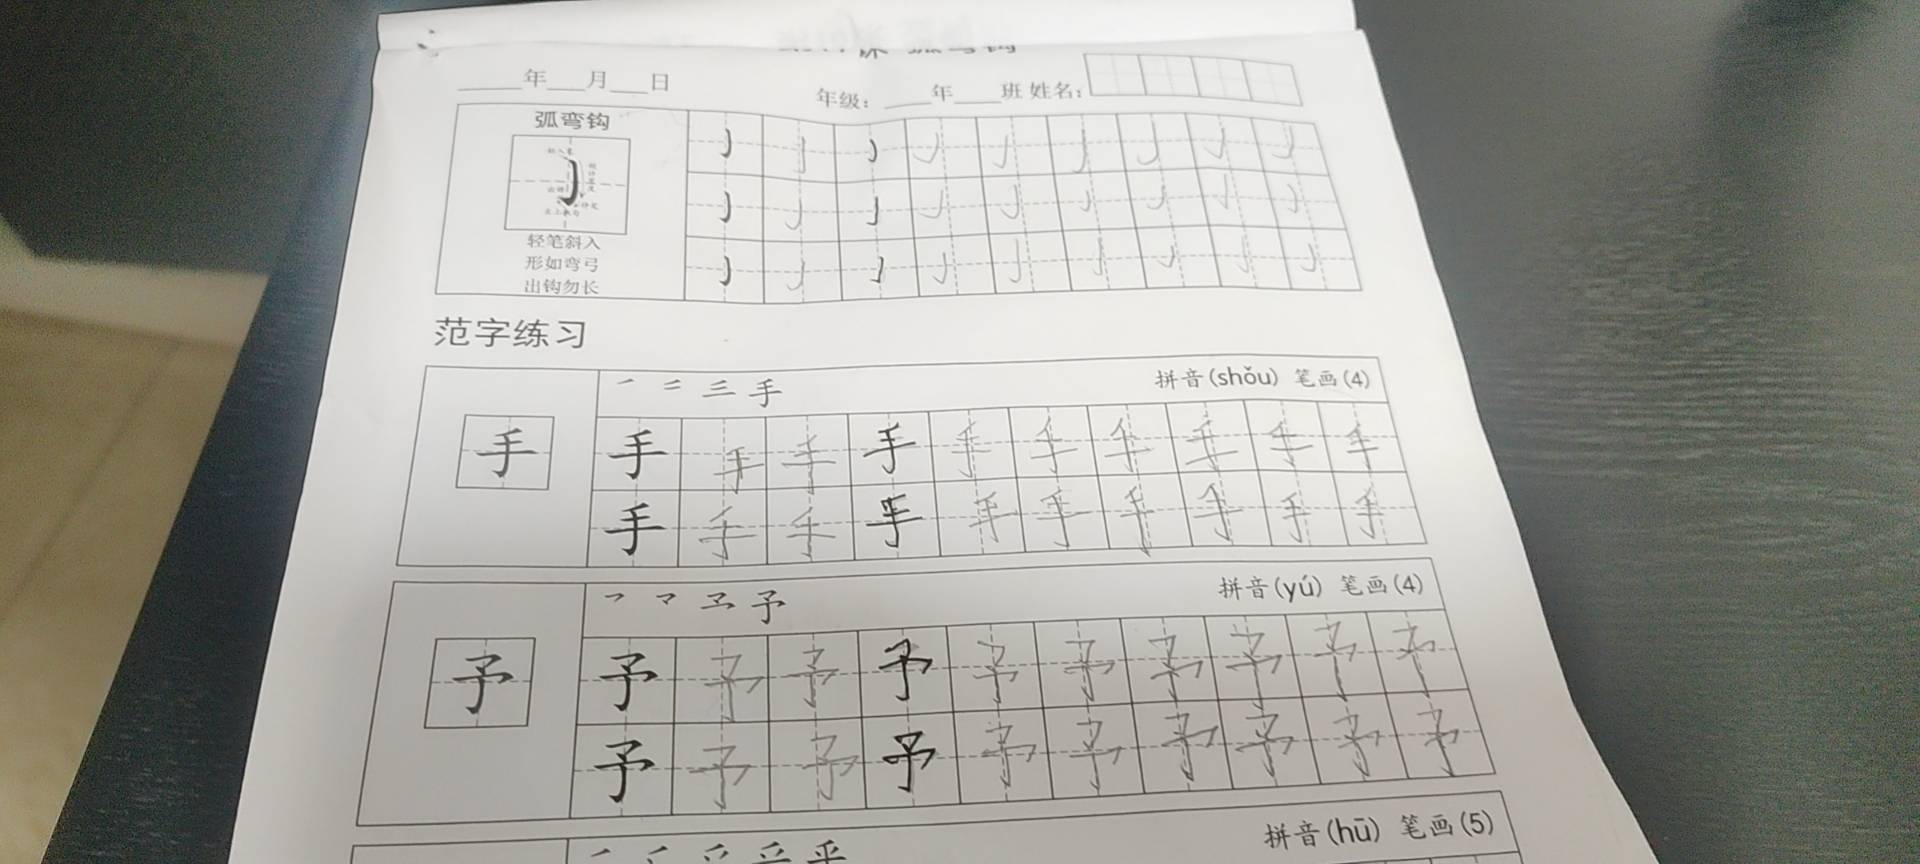 课 弧弯钩
年 月 日 年级： 年 班 姓名：
弧弯钩
轻笔斜入
形如弯弓
出钩勿长
范字练习
手 拼音(shǒu) 笔画(4)
手 手 手 手 手 手 手 手 手 手 手
手 手 手 手 手 手 手 手 手 手
予 拼音(yú) 笔画(4)
予 予 予 予 予 予 予 予 予 予 予
予 予 予 予 予 予 予 予 予 予
乎 拼音(hū) 笔画(5)